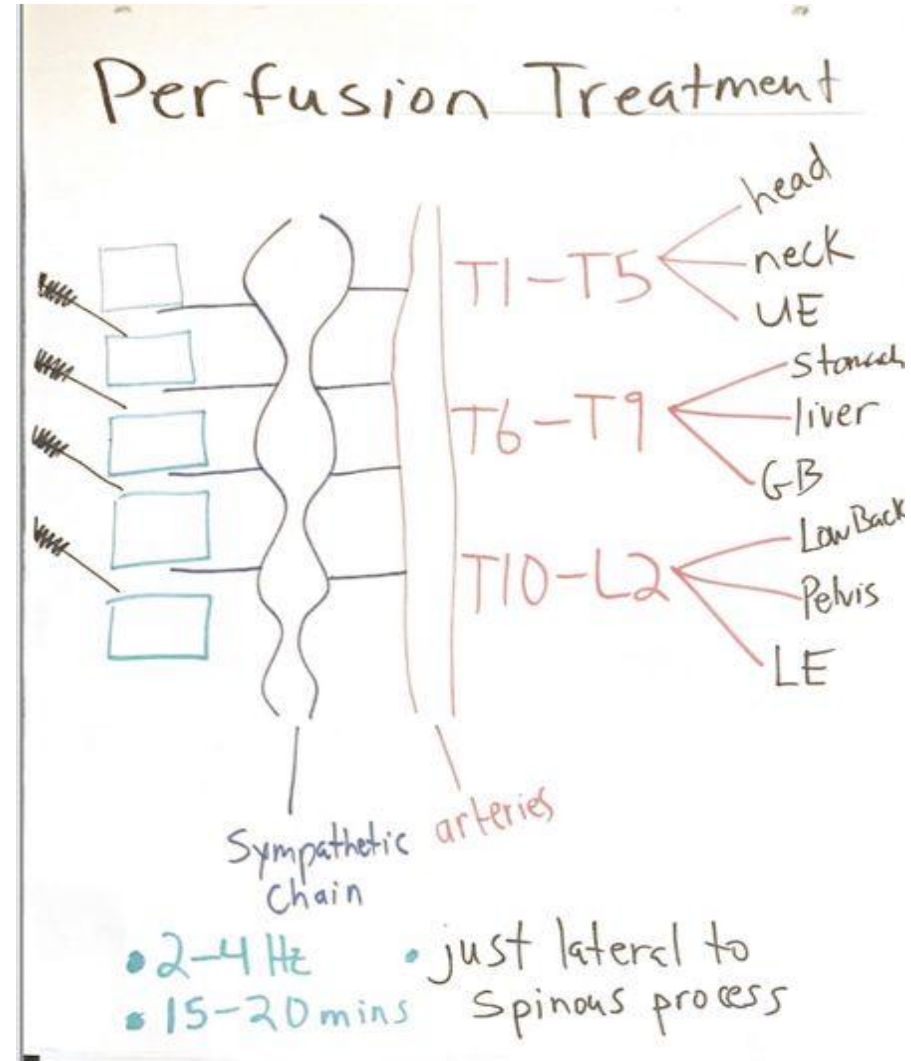 Perfusion Treatment
T1-T5
head
neck
UE
T6-T9
Stomach
liver
GB
T10-L2
Low Back
Pelvis
LE
Sympathetic
Chain
arteries
• 2-4 Hz
• 15-20 mins
• just lateral to
Spinous process